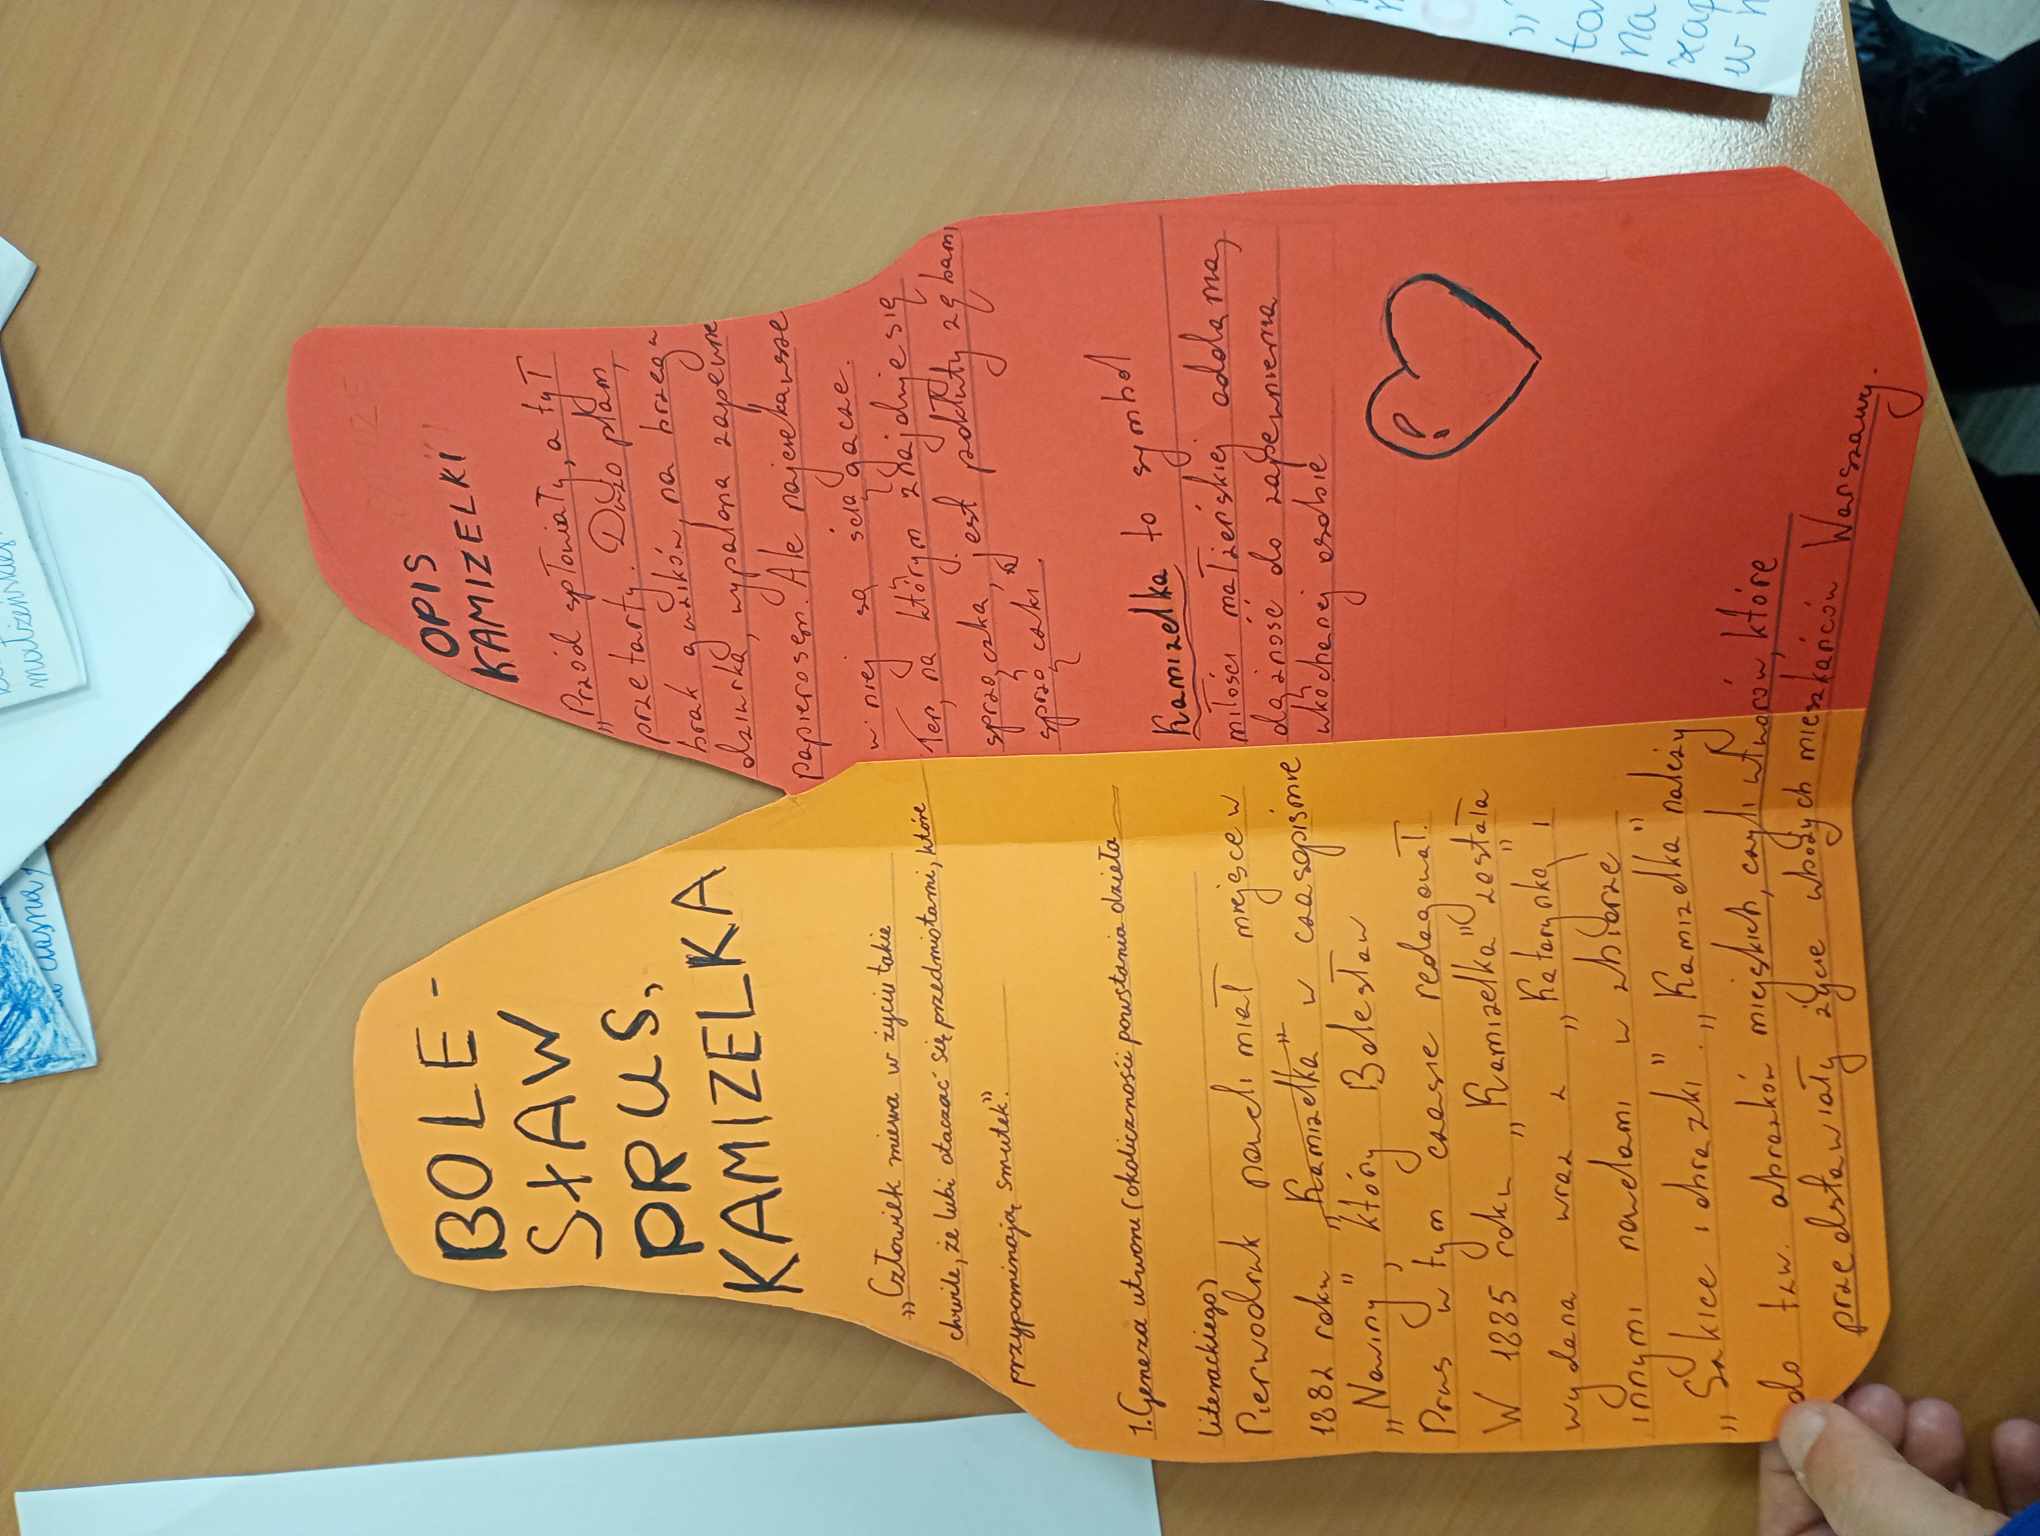 BOLE-
SŁAW
PRUS,
KAMIZELKA
„Człowiek miewa w życiu takie
chwile, że lubi otaczać się przedmiotami, które
przypominają smutek”.
1. Geneza utworu (okoliczności powstania dzieła
literackiego)
Pierwodruk noweli miał miejsce w
1882 roku „Kamizelka” w czasopiśmie
„Nowiny”, który Bolesław
Prus w tym czasie redagował.
W 1885 roku „Kamizelka” została
wydana wraz z „Katarynką” i
innymi nowelami w zbiorze
„Szkice i obrazki”. „Kamizelka” należy
do tzw. obrazków miejskich, czyli utworów, które
przedstawiały życie ubogich mieszkańców Warszawy.
OPIS
KAMIZELKI
„Przód spłowiały, a tył
przetarty. Dużo plam,
brak guzików, na brzegu
dziurka, wypalona zapewne
papierosem. Ale najciekawsze
w niej są ściągacze.
Ten, na którym znajduje się
sprzączka, jest podkłuty zębami
sprzączki.
Kamizelka to symbol
miłości małżeńskiej oddania,
dążność do zapewnienia
ukochanej osobie
małżeńskiej
ta
na
zap
w